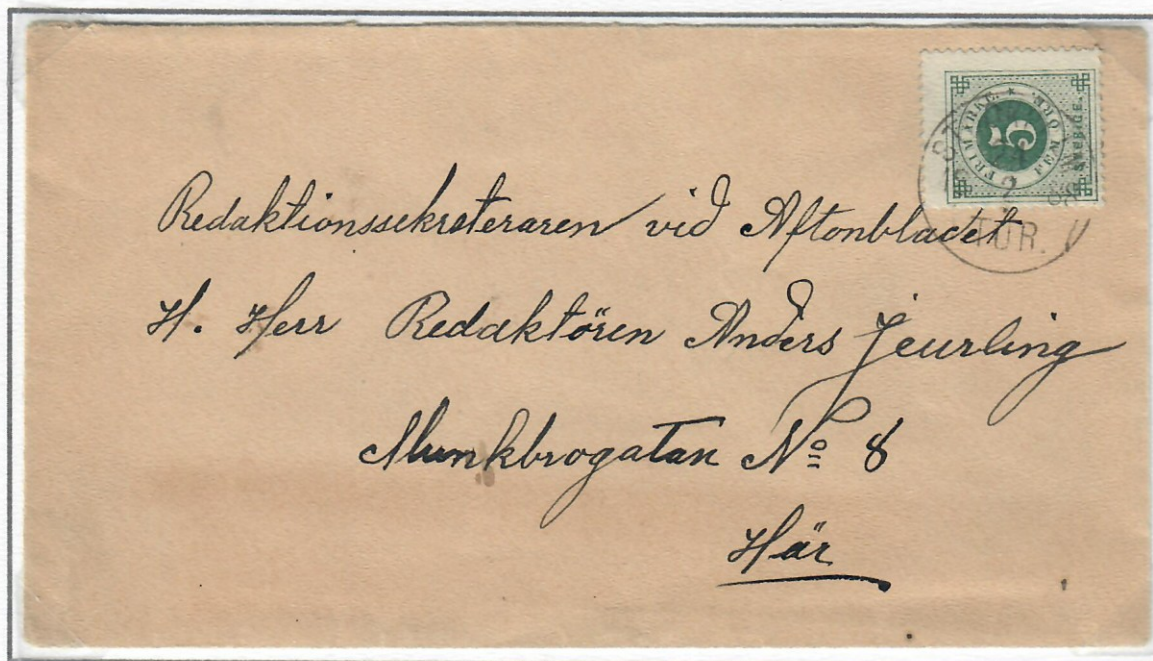 FRIMÄRKE. FEM ÖRE.
5
SVERIGE.
TUR.
Redaktionssekreteraren vid Aftonbladet
H. Herr Redaktören Anders Jeurling
Munkbrogatan No 8
Här